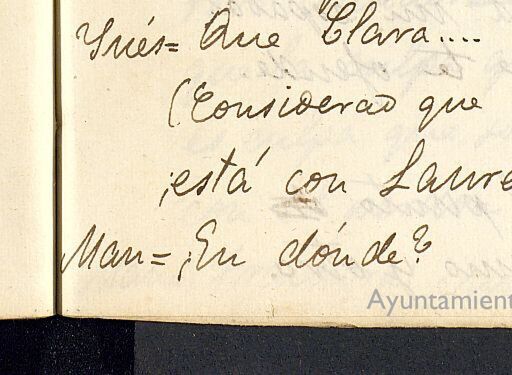 Ynés= Que Clara....
(Considerad que
¡está con Laure
Man= ¿En dónde?
Ayuntamient